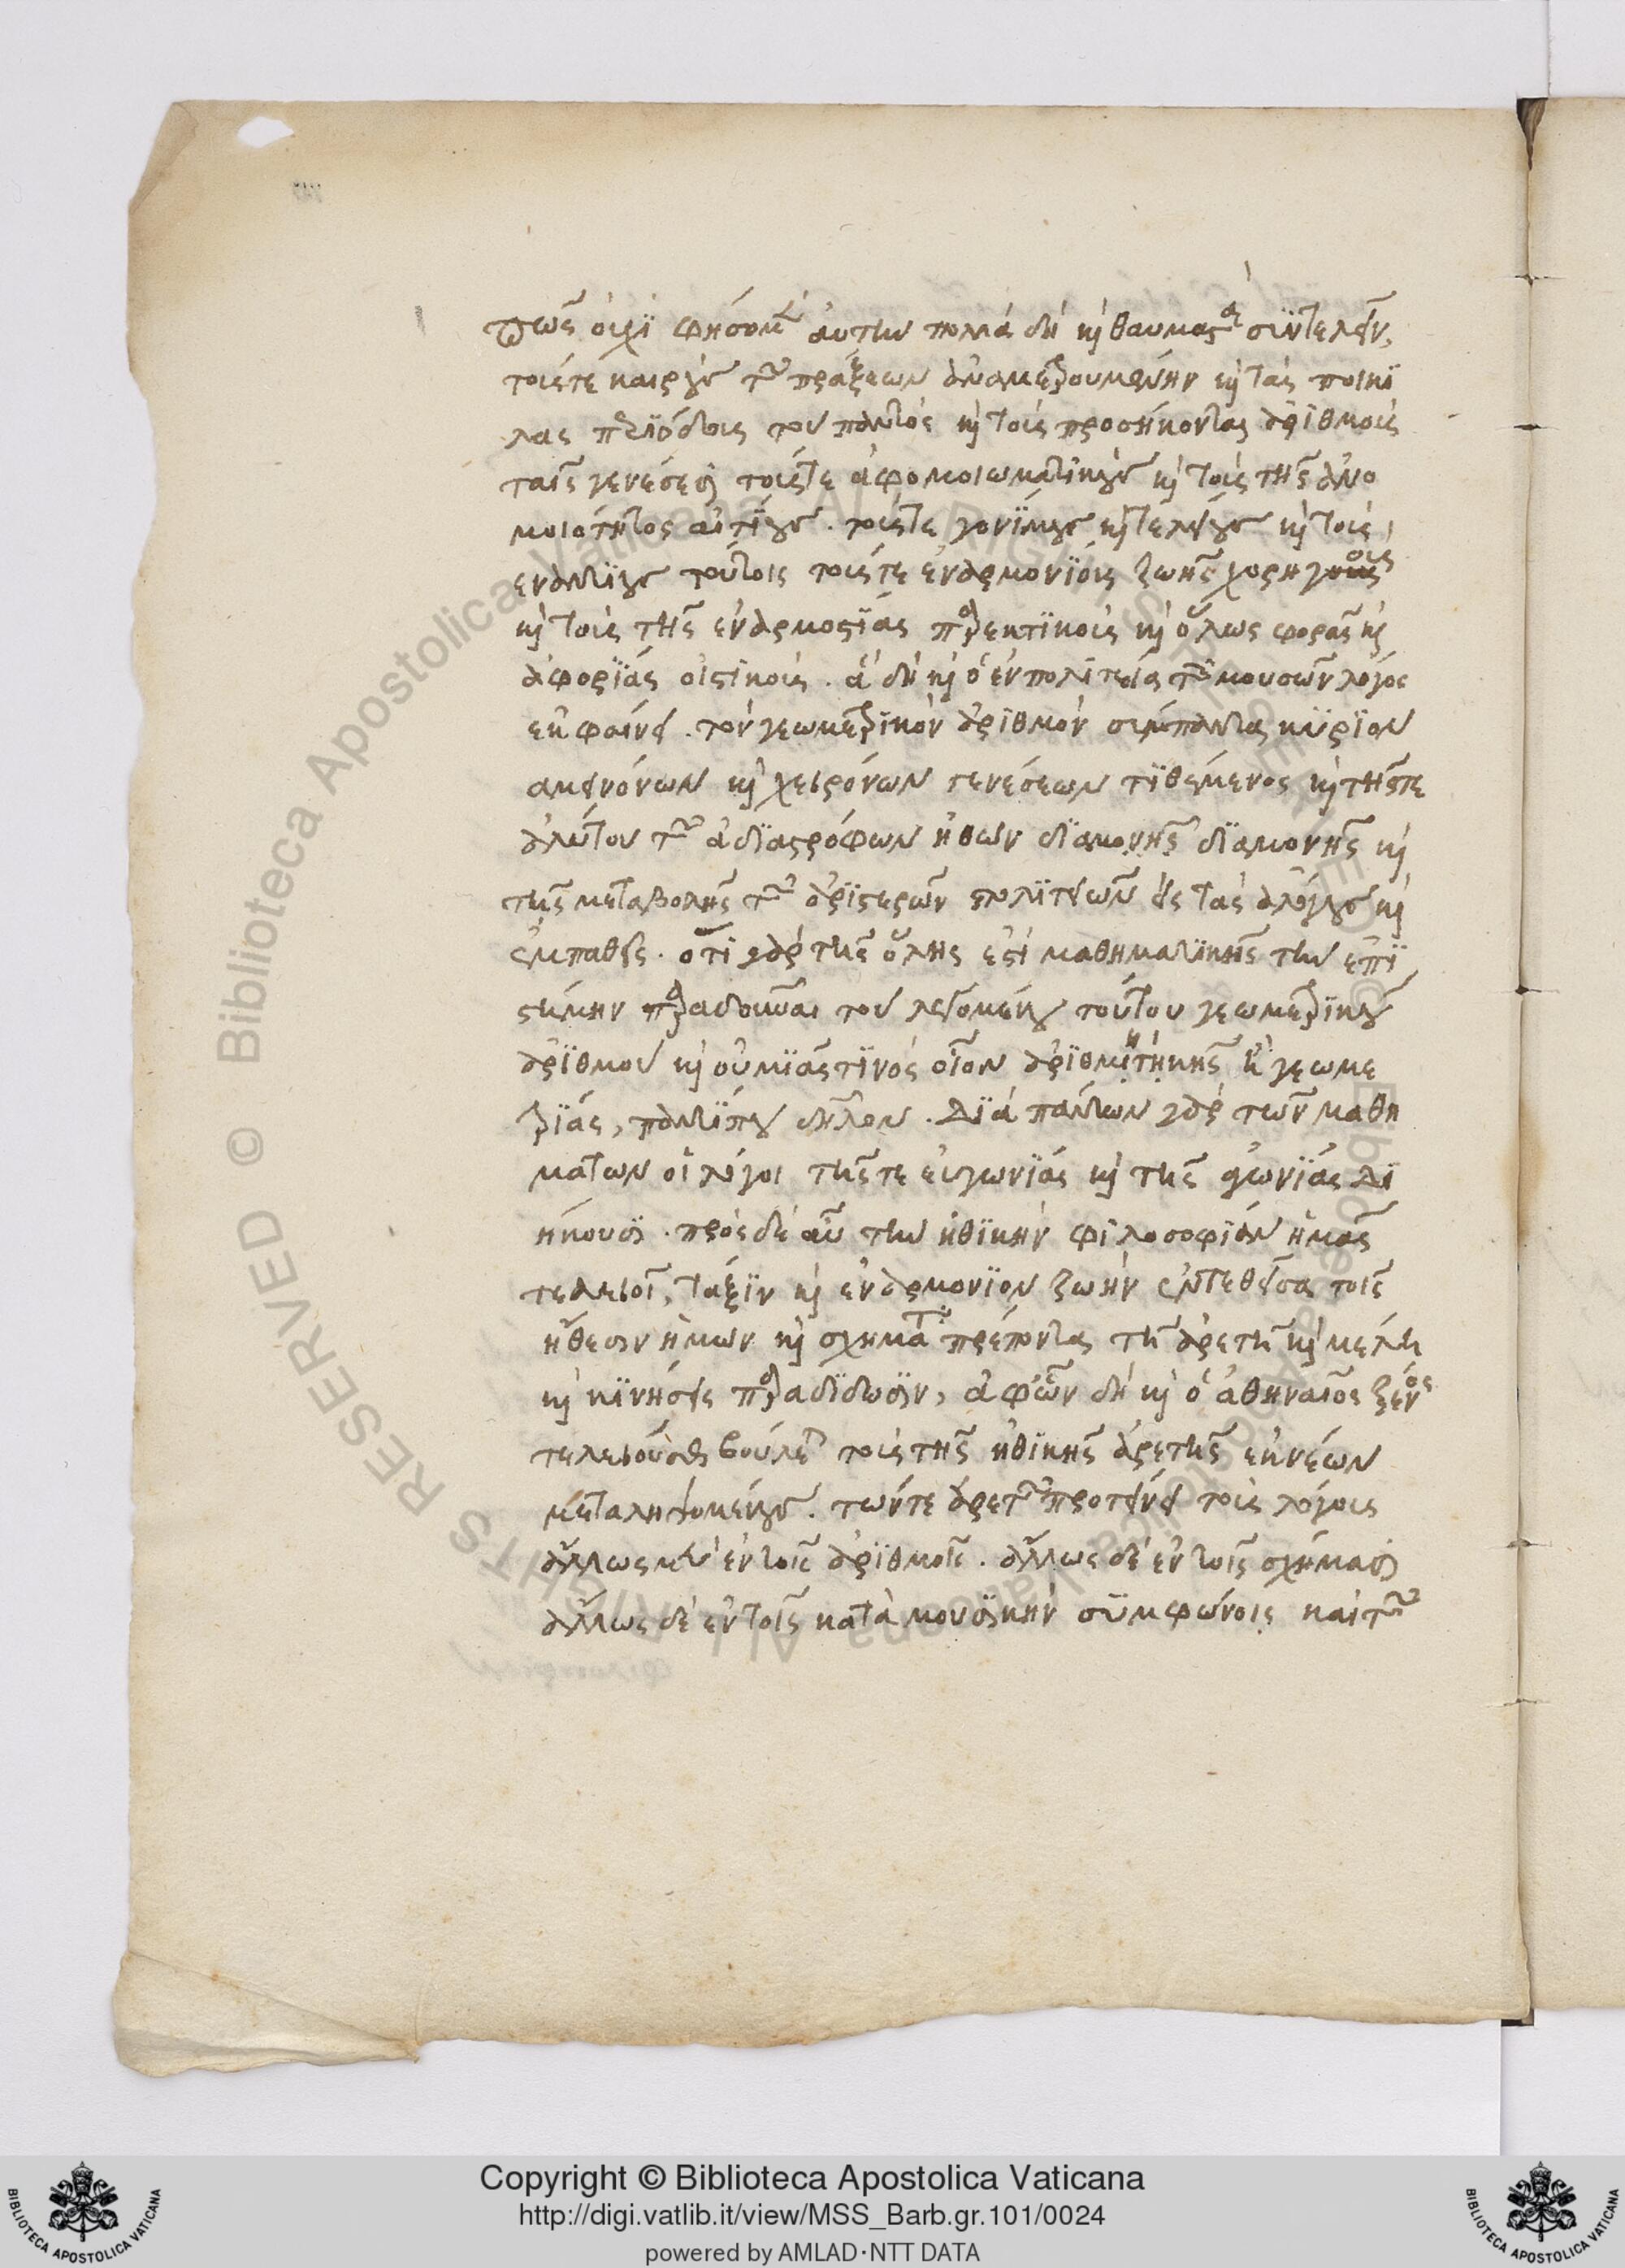 πῶς οὐχὶ φήσομεν αὐτὴν πολλὰ δὴ καὶ θαυμαστὰ συντελεῖν,
τούς τε καιροὺς τῶν πράξεων ἀναμετρουμένην καὶ τὰς ποικί
λας περιόδους τοῦ παντὸς καὶ τοὺς προσήκοντας ἀριθμοὺς
ταῖς γενέσεσι τούς τε ἀφομοιωματικοὺς καὶ τοὺς τῆς ἀνο
μοιότητος αἰτίους. τούς τε γονίμους καὶ τελείους καὶ τοὺς
ἐναντίους τούτοις τούς τε ἐναρμονίους ζωῆς χορηγοὺς
καὶ τοὺς τῆς ἐναρμοστίας παρεκτικοὺς καὶ ὅλως φορᾶς καὶ
ἀφορίας οἰστικούς. ἃ δὴ καὶ ὁ ἐν πολιτεία τῶν μουσῶν λόγος
ἐκφαίνει. τὸν γεωμετρικὸν ἀριθμὸν σύμπαντα κύριον
ἀμεινόνων καὶ χειρόνων γενέσεων τιθέμενος καὶ τῆς τε
ἀλύτου τῶν ἀδιαστρόφων ἠθῶν διαμονῆς διαμονῆς καὶ
τῆς μεταβολῆς τῶν ἀρίστερῶν πολιτειῶν εἰς τὰς ἀλόγους καὶ
ἐμπαθεῖς. ὅτι γὰρ τῆς ὅλης ἐστὶ μαθηματικῆς τὴν ἐπι
στήμην παραδοῦναι τοῦ λεγομένου τούτου γεωμετρικοῦ
ἀριθμοῦ καὶ οὐ μιᾶς τινὸς οἷον ἀριθμητικῆς ἢ γεωμε
τρίας, παντί που δῆλον. Διὰ πάντων γὰρ τῶν μαθη
μάτων οἱ λόγοι τῆς τε εὐγωνίας καὶ τῆς ἀγωνίας δι
ήκουσι. πρὸς δὲ αὖ τὴν ἠθικὴν φιλοσοφίαν ἡμᾶς
τελειοῖ, τάξιν καὶ ἐναρμόνιον ζωὴν ἐντεθεῖσα τοῖς
ἤθεσιν ἡμῶν καὶ σχήματά πρέποντα τῇ ἀρετῇ καὶ μέλη
καὶ κινήσεις παραδίδωσιν, ἀφ' ὧν δὴ καὶ ὁ ἀθηναῖος ξένος
τελειοῦσθαι βούλεται τοὺς τῆς ἠθικῆς ἀρετῆς ἐκ νέων
μεταληψομένους. τῶν τε ἀρετῶν προτείνει τοὺς λόγους
ἄλλως μὲν ἐν τοῖς ἀριθμοῖς. ἄλλως δὲ ἐν τοῖς σχήμασι
ἄλλως δὲ ἐν τοῖς κατὰ μουσικὴν συμφώνοις καὶ τῶν
Copyright © Biblioteca Apostolica Vaticana
http://digi.vatlib.it/view/MSS_Barb.gr.101/0024
powered by AMLAD·NTT DATA